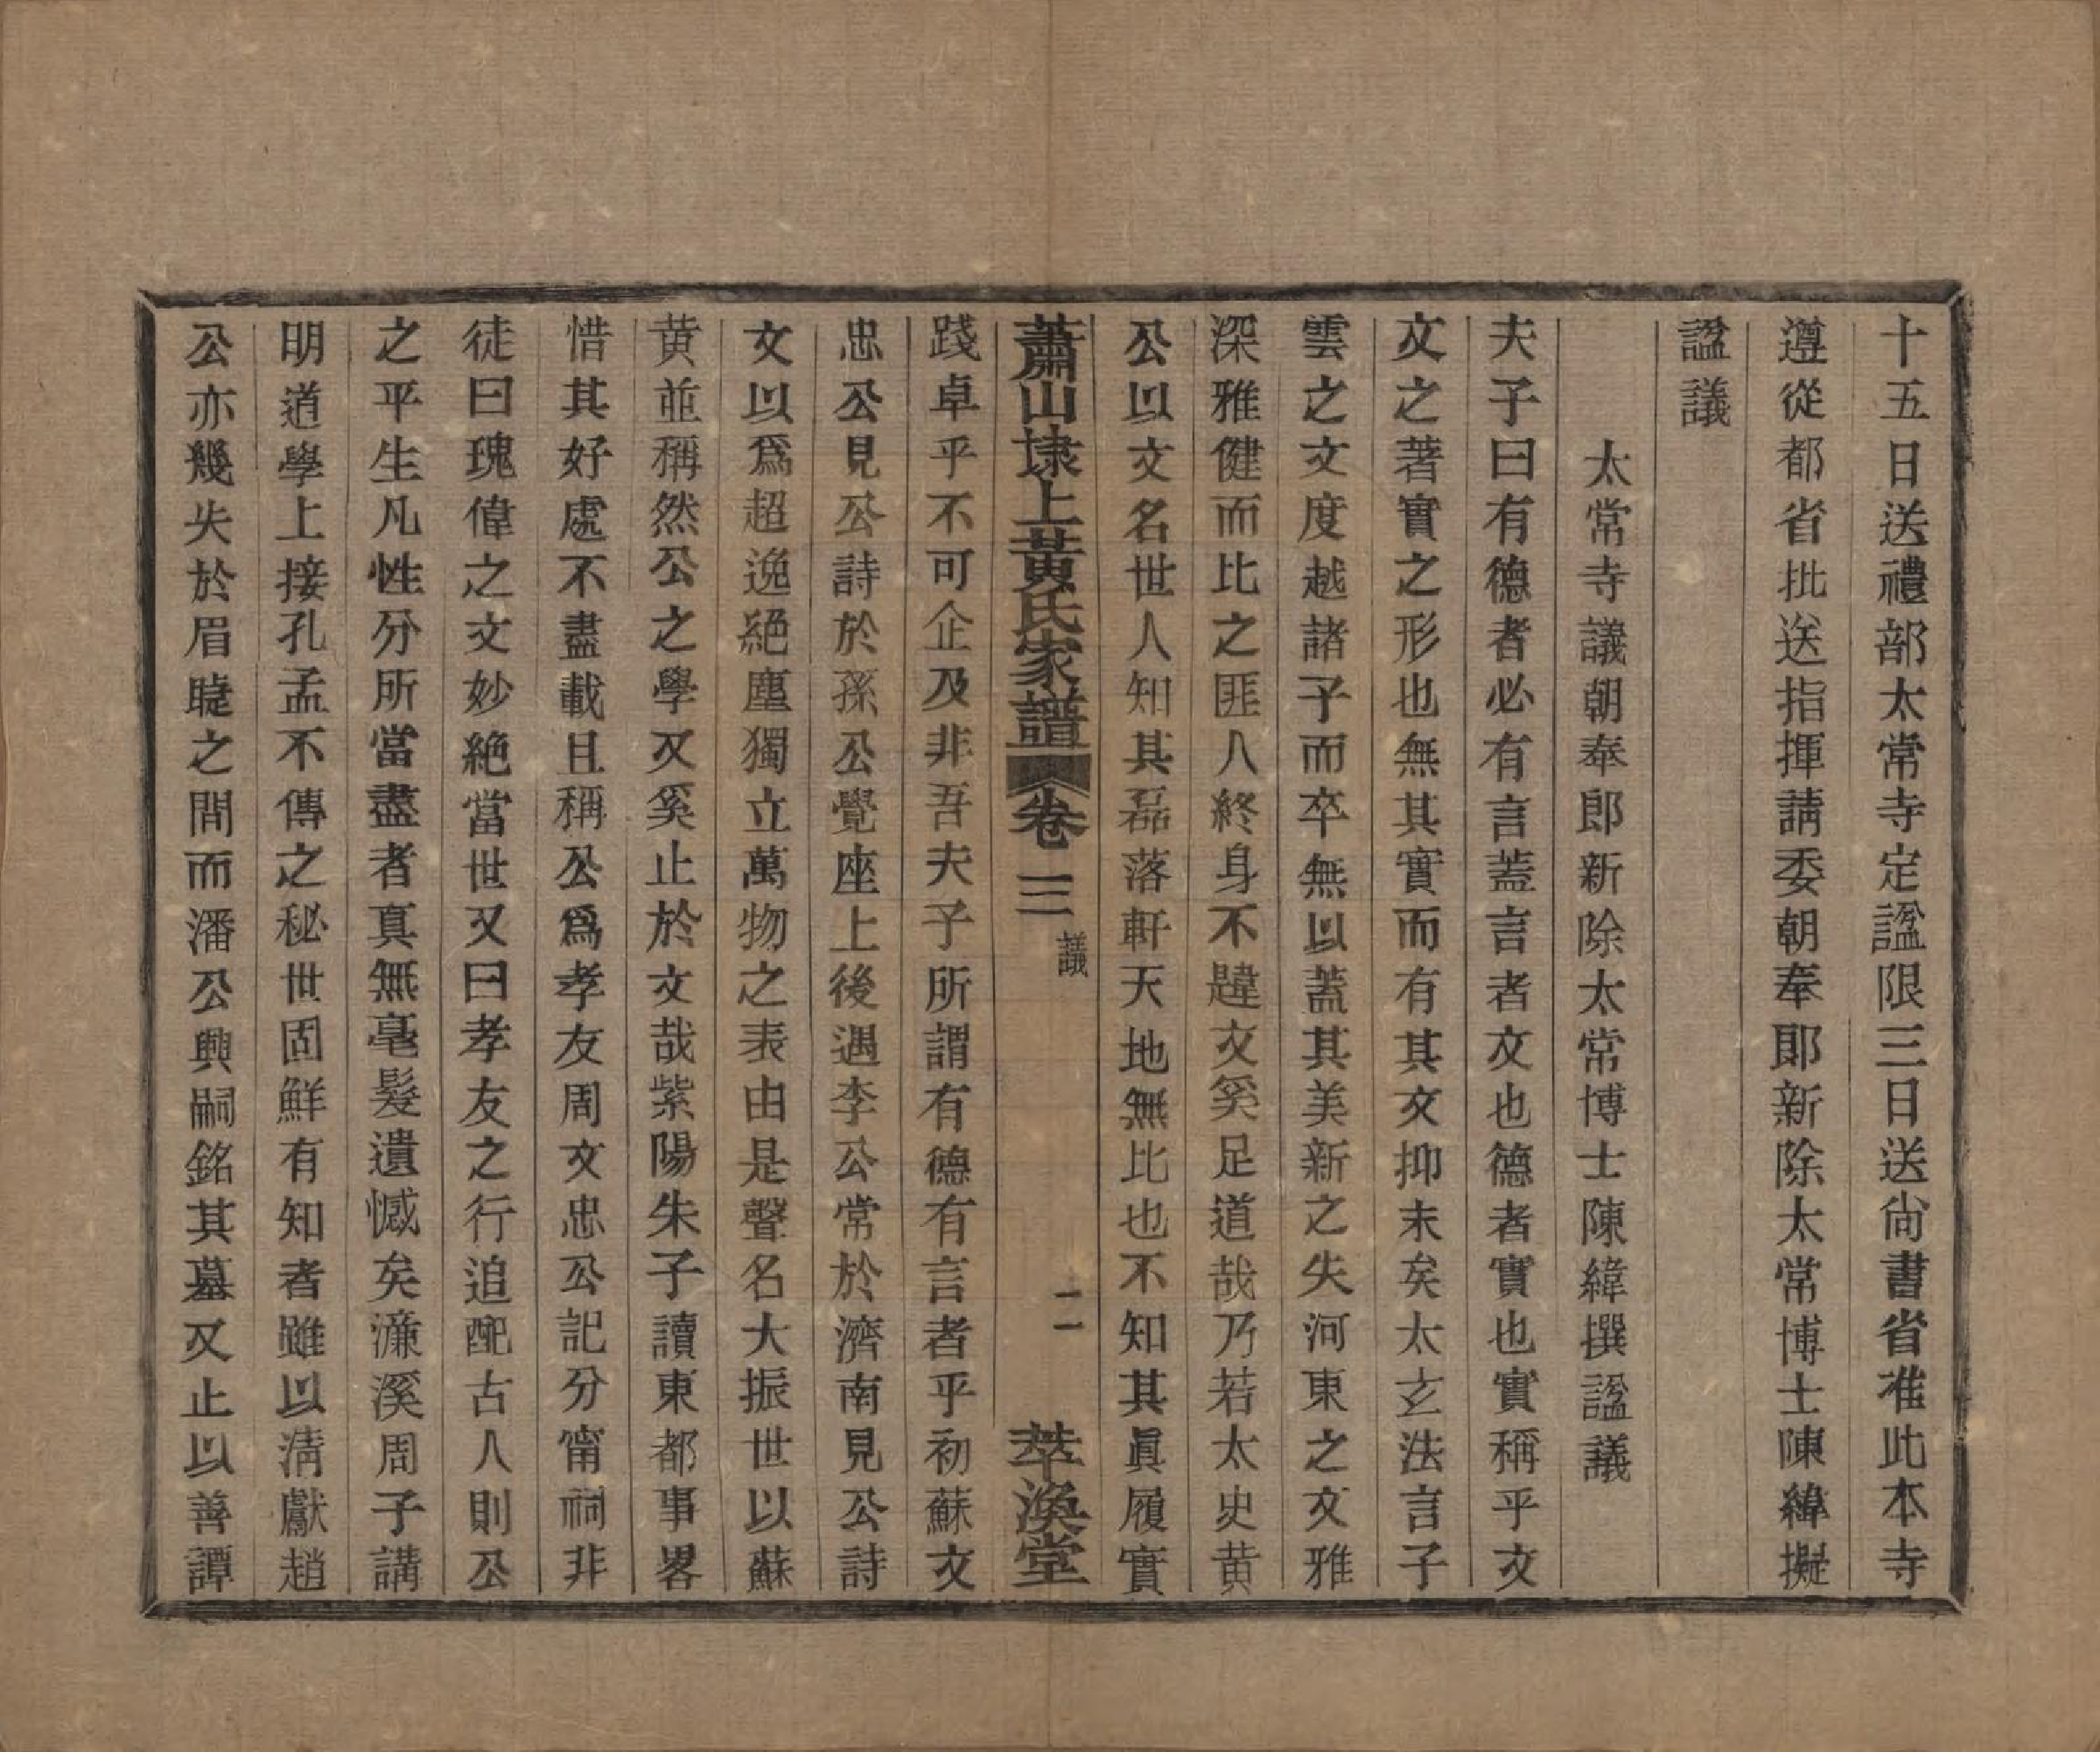 十五日送禮部太常寺定諡限三日送尙書省准此本寺
遵從都省批送指揮請委朝奉郎新除太常博士陳緯擬
諡議
太常寺議朝奉郎新除太常博士陳緯撰諡議
夫子曰有德者必有言蓋言者文也德者實也實稱乎文
文之著實之形也無其實而有其文抑末矣太玄法言子
雲之文度越諸子而卒無以蓋其美新之失河東之文雅
深雅健而比之匪人終身不韙文奚足道哉乃若太史黄
公以文名世人知其磊落軒天地無比也不知其眞履實
蕭山埭上黃氏家譜 卷三 議 二 萃渙堂
踐卓乎不可企及非吾夫子所謂有德有言者乎初蘇文
忠公見公詩於孫公覺座上後遇李公常於濟南見公詩
文以爲超逸絕塵獨立萬物之表由是聲名大振世以蘇
黄並稱然公之學又奚止於文哉紫陽朱子讀東都事畧
惜其好處不盡載且稱公爲孝友周文忠公記分甯祠非
徒曰瑰偉之文妙絕當世又曰孝友之行追配古人則公
之平生凡性分所當盡者真無毫髮遺憾矣濂溪周子講
明道學上接孔孟不傳之秘世固鮮有知者雖以淸獻趙
公亦幾失於眉睫之間而潘公興嗣銘其墓又止以善譚